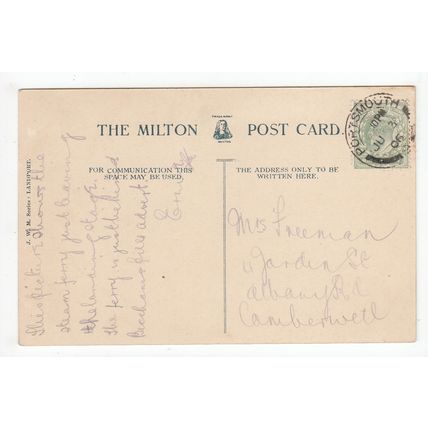 THE MILTON POST CARD
TRADE MARK
MILTON
FOR COMMUNICATION THIS
SPACE MAY BE USED.
THE ADDRESS ONLY TO BE
WRITTEN HERE.
J. W. M. Series: LANDPORT.
This picture shows the
steam ferry just leaving
the landing stage.
the ferry is just behind
Beechams pills advert
Mrs Freeman
11 Jardin St
Albany Rd
Camberwell
PORTSMOUTH
JU
06